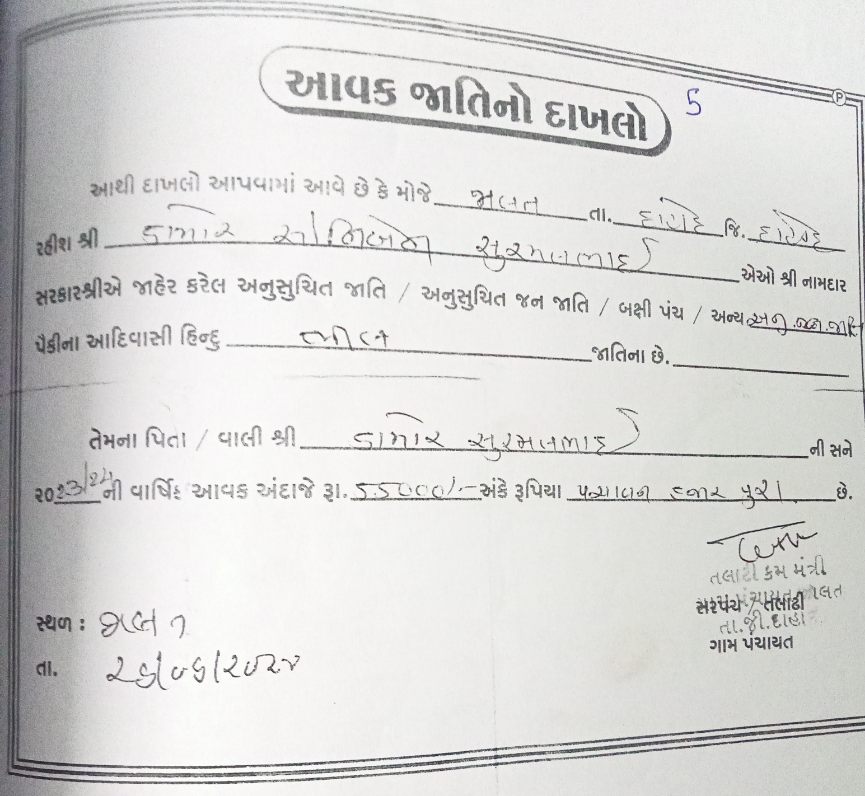 આવક જાતિનો દાખલો
5
આથી દાખલો આપવામાં આવે છે કે મોજે તા. દાહોદ જિ. દાહોદ
રહીશ શ્રી ડામોર સુરમલભાઈ એઓ શ્રી નામદાર
સરકારશ્રીએ જાહેર કરેલ અનુસુચિત જાતિ / અનુસુચિત જન જાતિ / બક્ષી પંચ / અન્ય અનુ.જન.જાતિ
પૈકીના આદિવાસી હિન્દુ ભીલ જાતિના છે.
તેમના પિતા / વાલી શ્રી ડામોર સુરમલભાઈ ની સને
૨૦૨૩/૨૪ની વાર્ષિક આવક અંદાજે રૂા. ૫૫૦૦૦/- અંકે રૂપિયા પચાવન હજાર પુરા છે.
તલાટી કમ મંત્રી
સરપંચ / તલાટી
તા.જી.દાહોદ
ગામ પંચાયત
સ્થળ :
તા. ૨૬/૦૬/૨૦૨૪